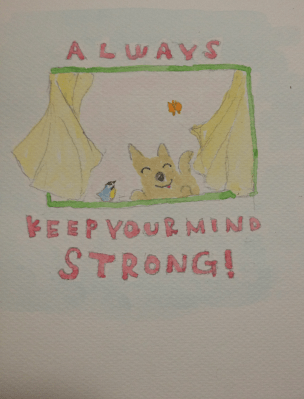 ALWAYS
KEEP YOUR MIND
STRONG!